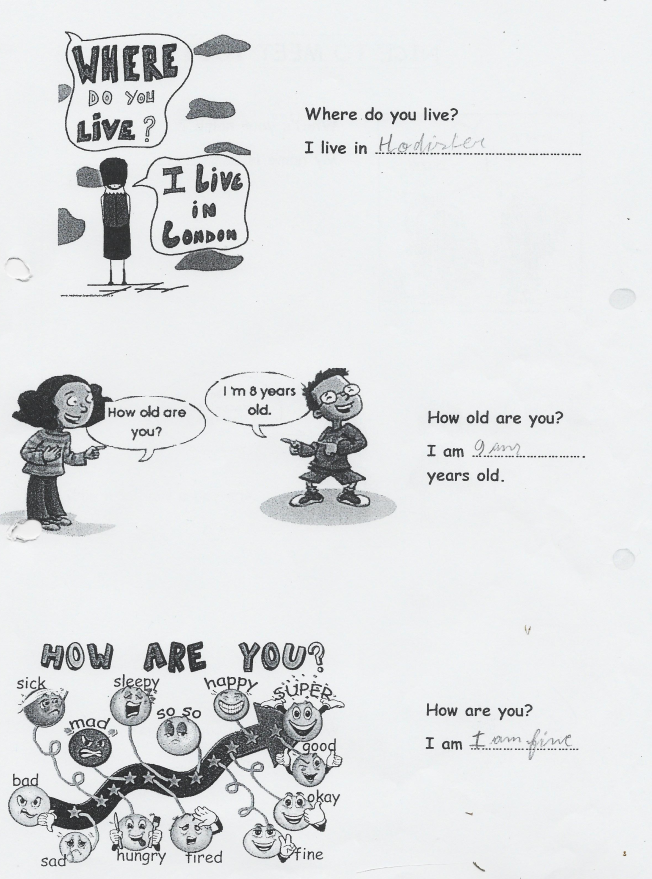 WHERE
DO YOU
LIVE?
I LIVE
IN
LONDON
Where do you live?
I live in Hodister
How old are
you?
I'm 8 years
old.
How old are you?
I am 9 ans
years old.
HOW ARE YOU?
sick
sleepy
happy
SUPER
mad
so so
good
bad
okay
sad
hungry
tired
fine
How are you?
I am I am fine